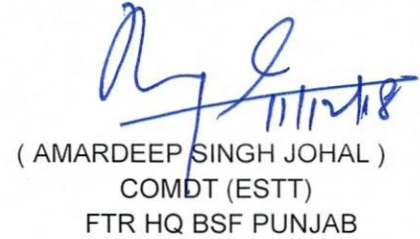 11/12/18
( AMARDEEP SINGH JOHAL )
COMDT (ESTT)
FTR HQ BSF PUNJAB